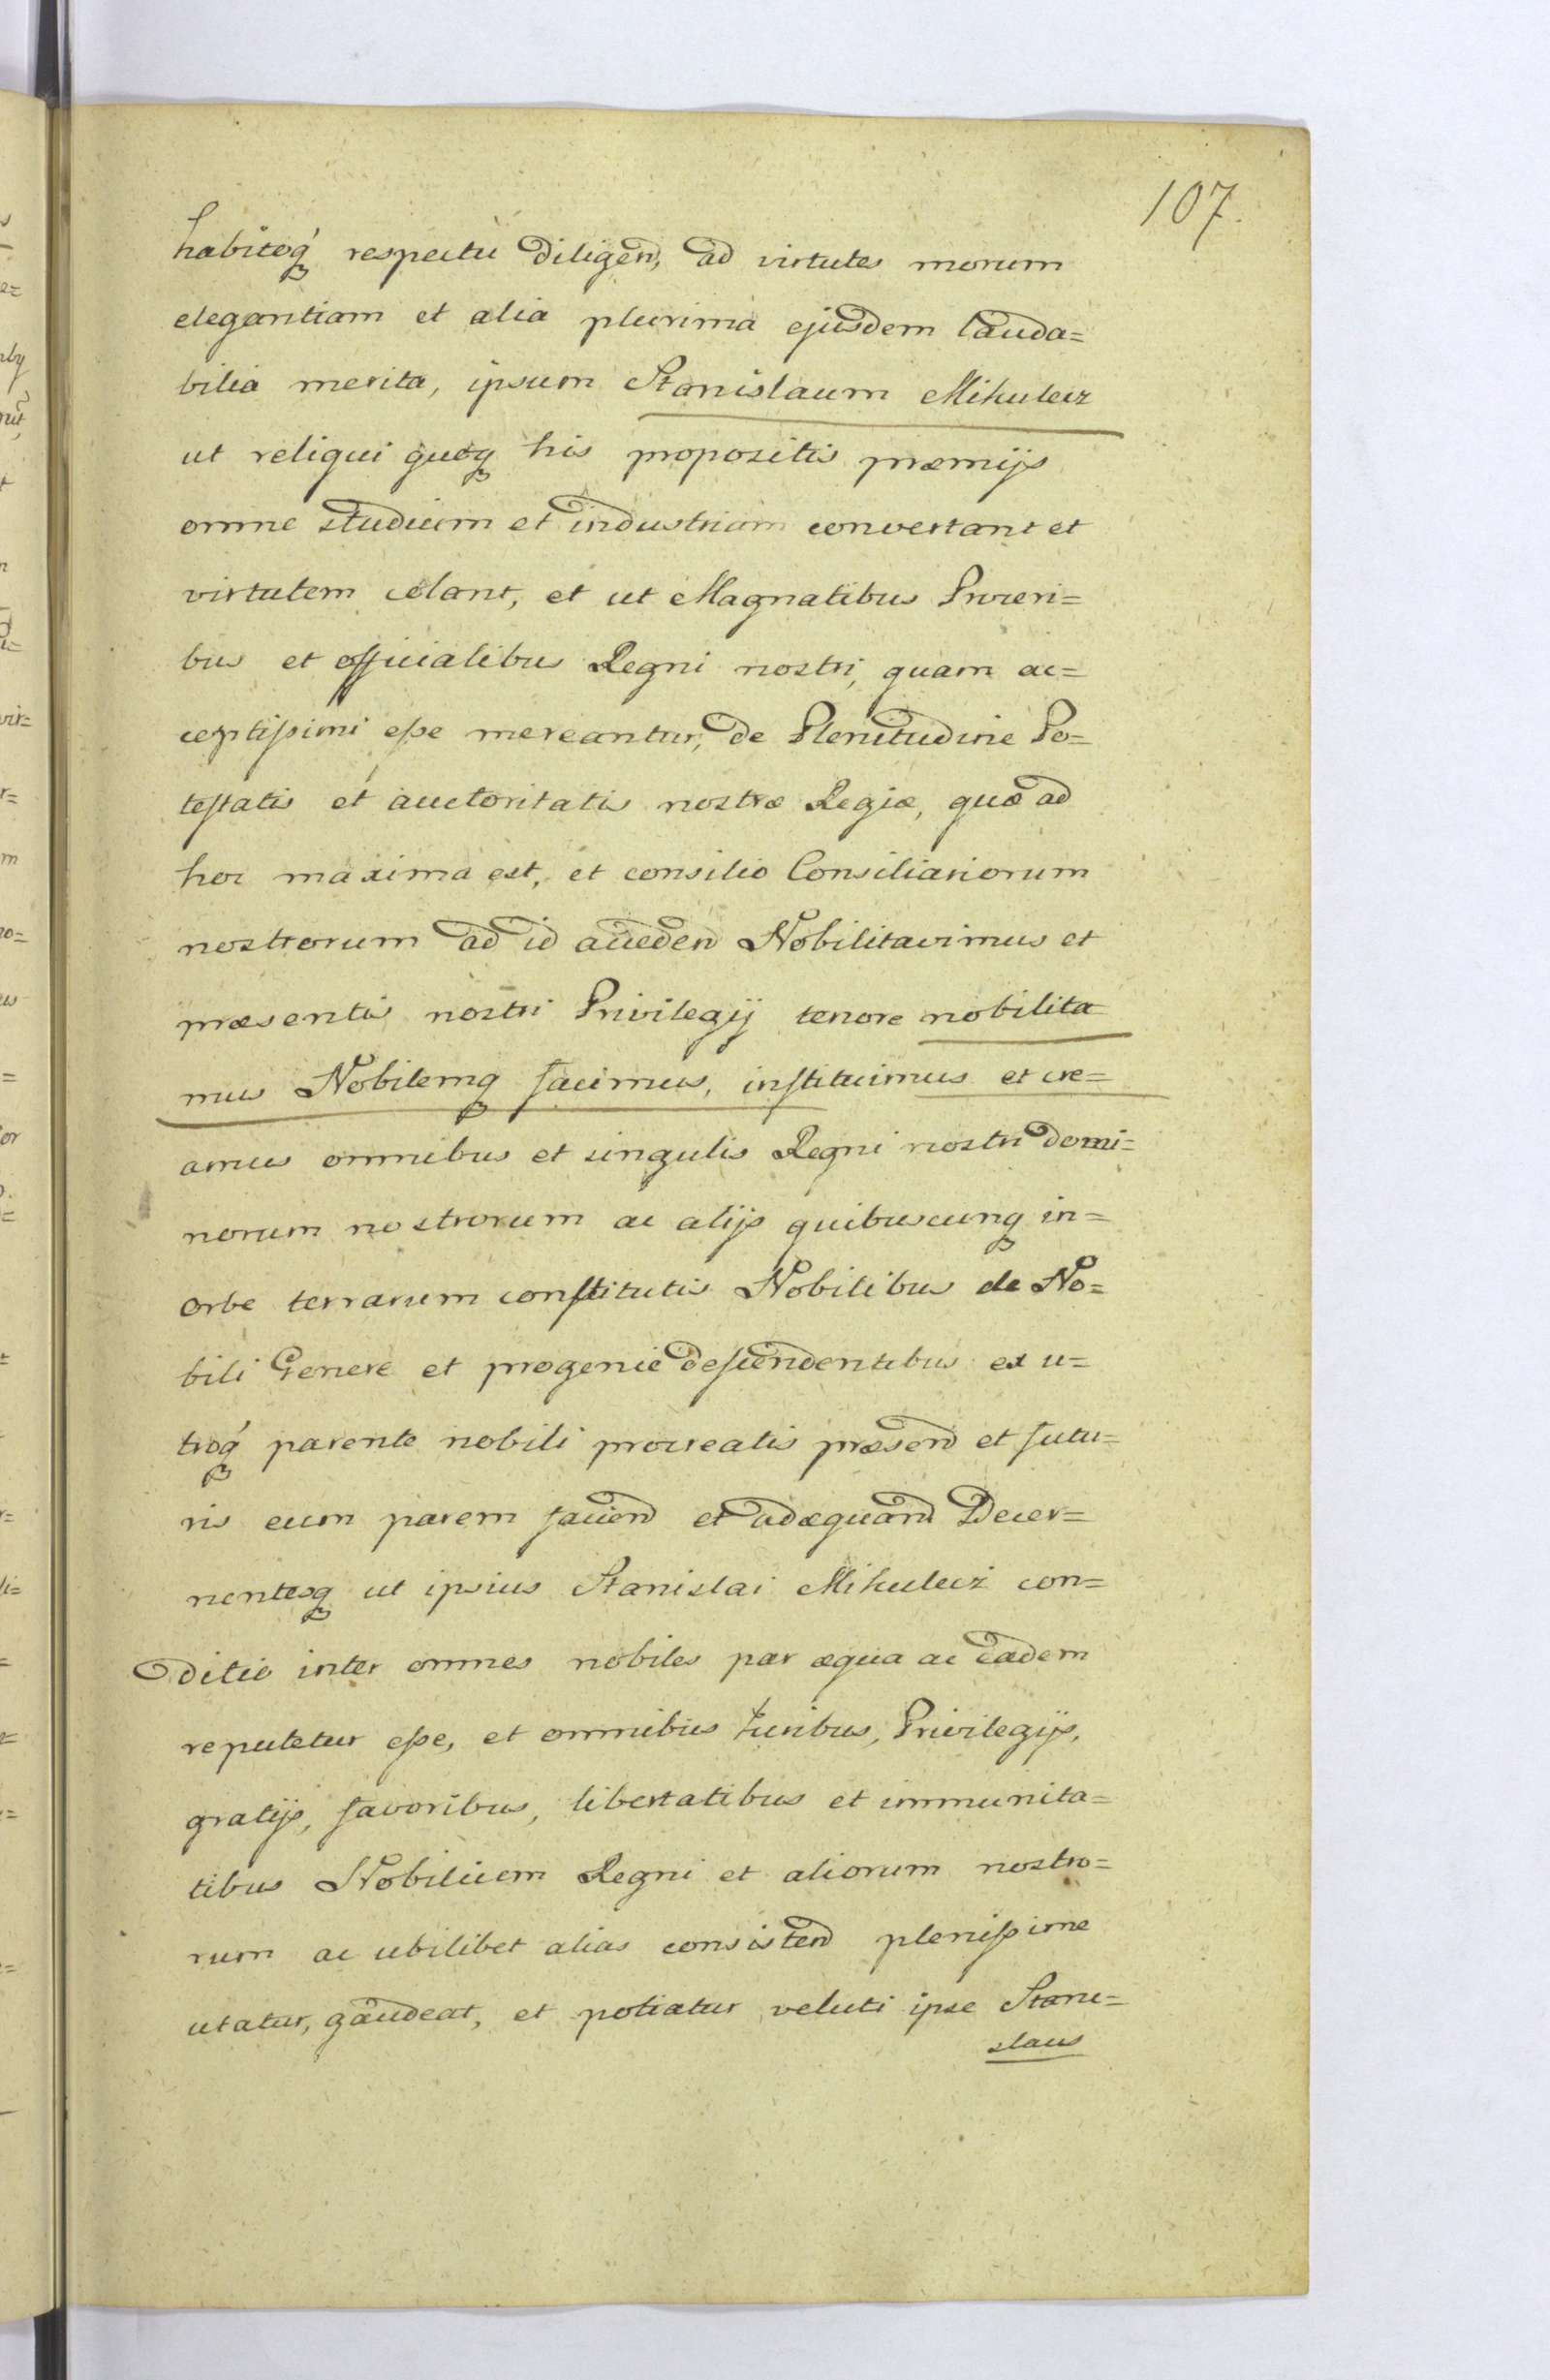 107.
habitoq́ respectu diligen, ad virtutes morum
elegantiam et alia plurima ejusdem lauda=
bilia merita, ipsum Stanislaum Mikulecz
ut reliqui quoq his propositis præmijs
omne studium et industriam convertant et
virtutem colant, et ut Magnatibus Proceri=
bus et officialibus Regni nostri, quam ac=
ceptißimi eße mereantur, de Plenitudine Po=
testatis et auctoritatis nostræ Regiæ, quæ ad
hoc maxima est, et consilio Consiliariorum
nostrorum ad id acceden Nobilitavimus et
præsentis nostri Privilegij tenore nobilita
mus Nobilemq facimus, instituimus et cre=
amus omnibus et singulis Regni nostri domi=
norum nostrorum ac alijs quibuscunq in=
orbe terrarum constitutis Nobilibus de No=
bili Genere et progenie descendentibus ex u=
troq́ parente nobili procreatis præsen et futu=
ris eum parem facien et adæquand Decer=
nentesq ut ipsius Stanislai Mikulecz con=
ditio inter omnes nobiles par æqua ac eadem
reputetur eße, et omnibus Juribus, Privilegijs,
gratijs, favoribus, libertatibus et immunita=
tibus Nobilium Regni et aliorum nostro=
rum ac ubilibet alias consisten plenißime
utatur, gaudeat, et potiatur veluti ipse Stani=
slaus